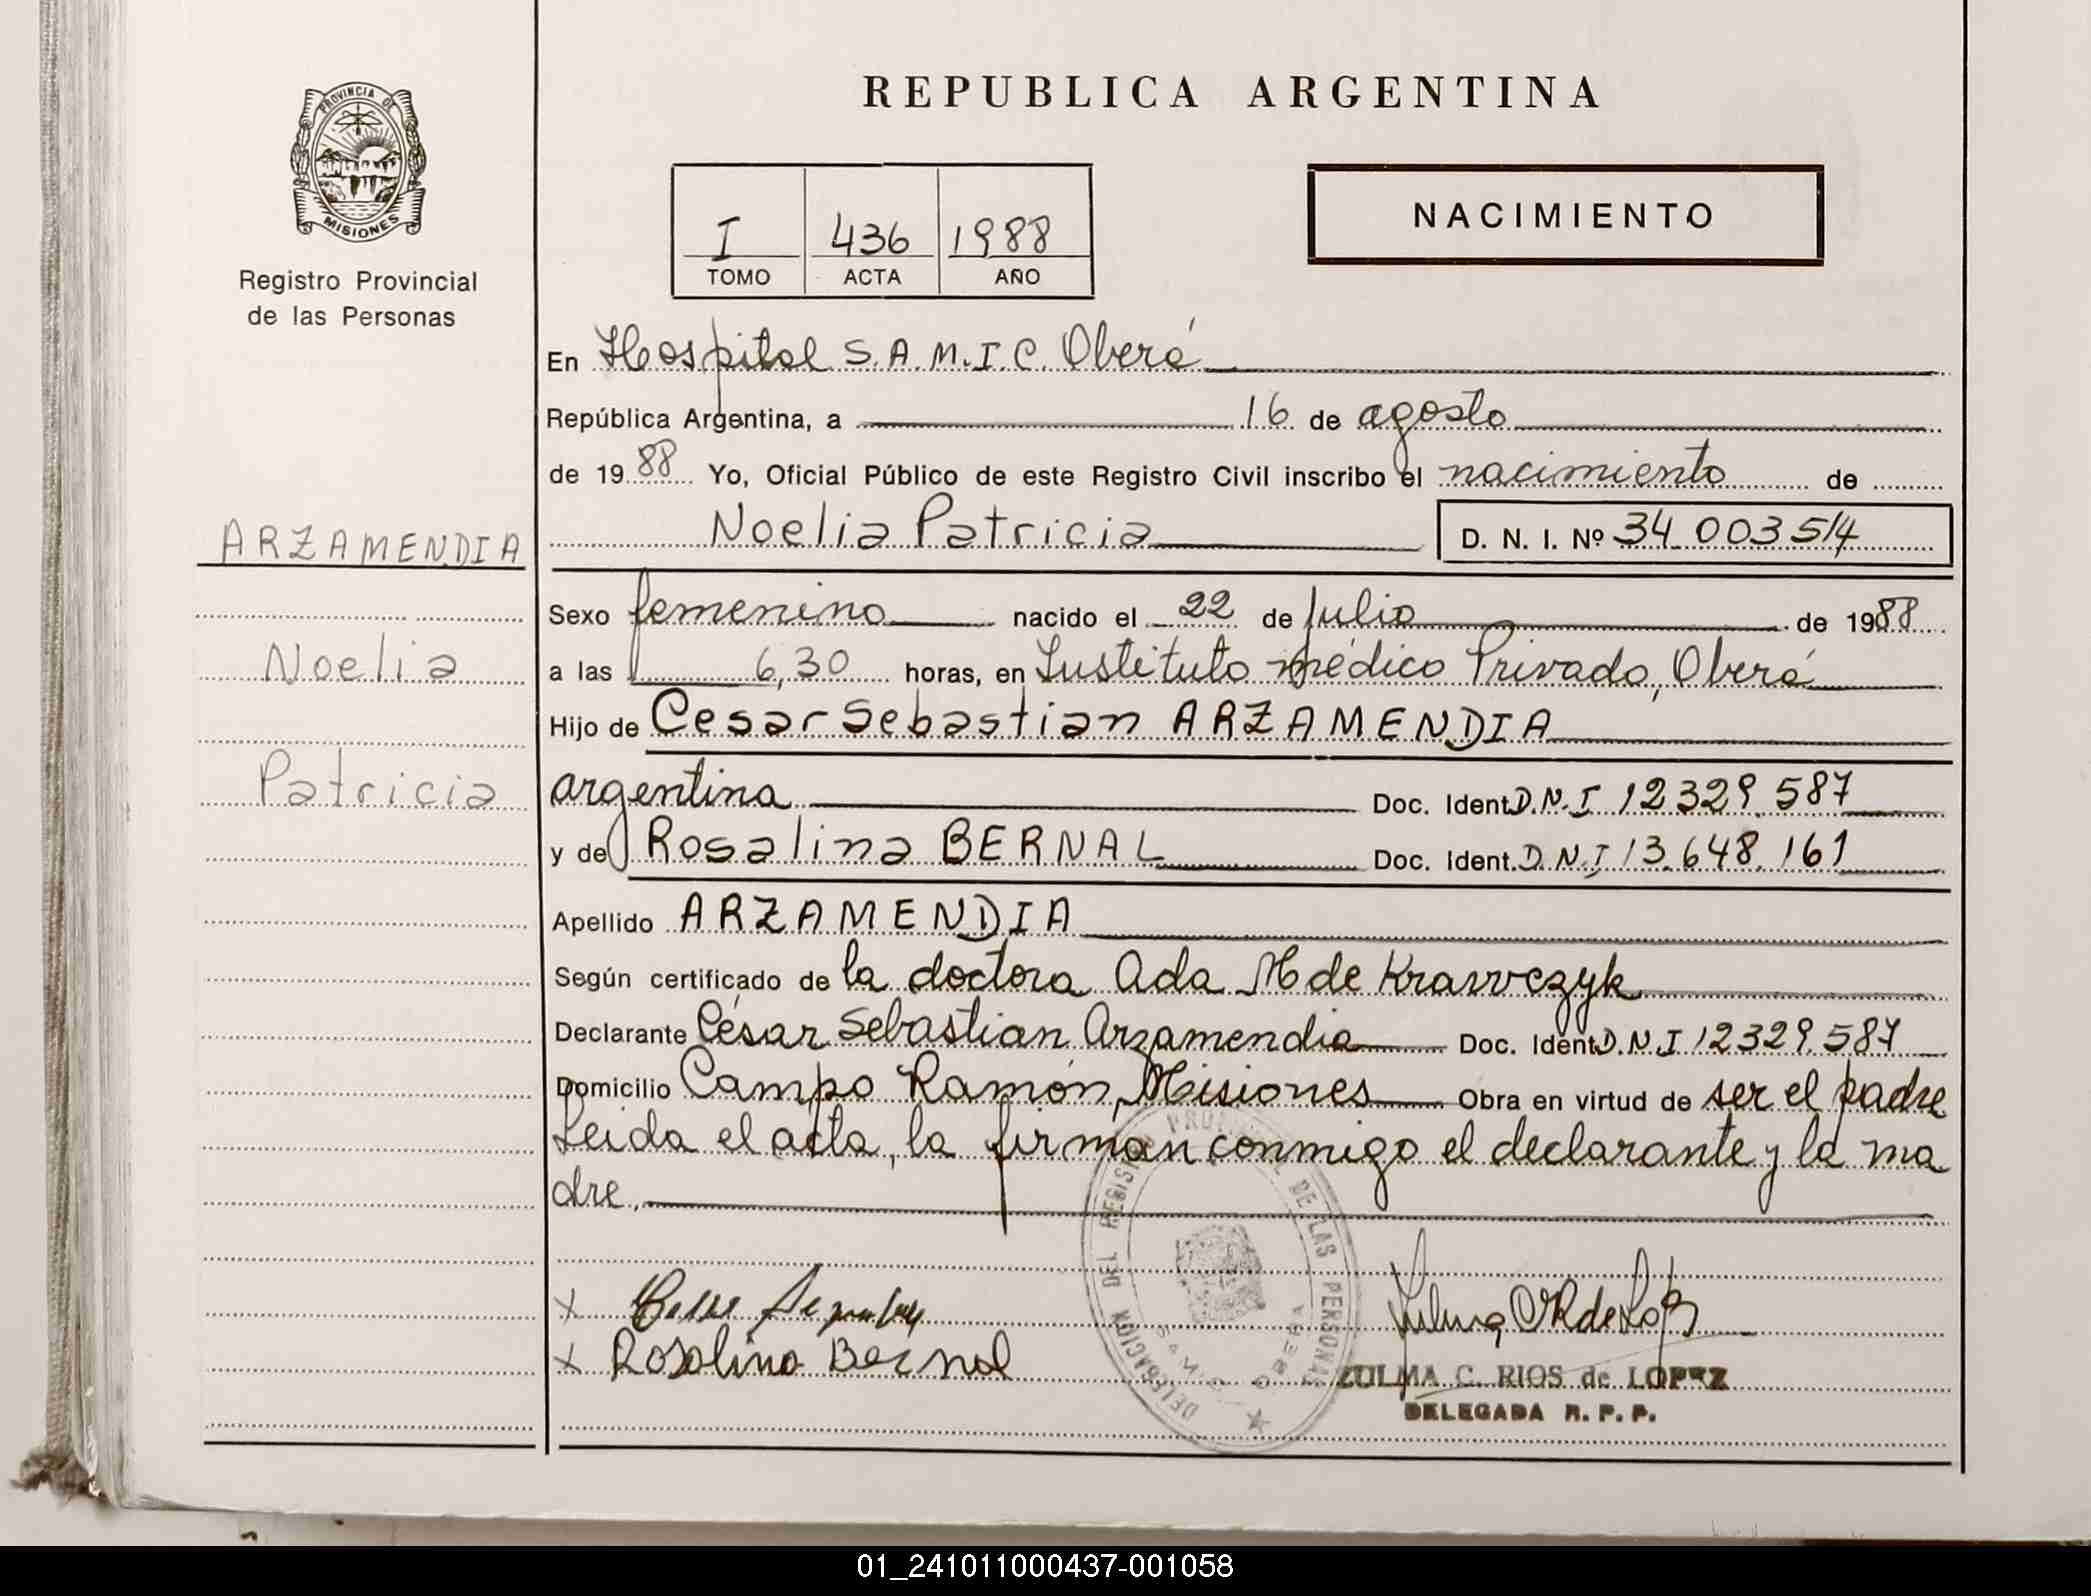 REPUBLICA ARGENTINA
PROVINCIA DE
MISIONES
Registro Provincial
de las Personas
I 436 1988
TOMO ACTA AÑO
NACIMIENTO
En Hospital S.A.M.I.C. Oberá
República Argentina, a 16 de agosto
de 1988 Yo, Oficial Público de este Registro Civil inscribo el nacimiento de
Noelia Patricia D. N. I. Nº 34 003514
ARZAMENDIA
Noelia
Patricia
Sexo femenino nacido el 22 de Julio de 1988
a las 6,30 horas, en Instituto médico Privado, Oberá
Hijo de Cesar Sebastian ARZAMENDIA
argentina Doc. Ident. D.N.I 12329.587
y de Rosalina BERNAL Doc. Ident. D.N.I 13.648.161
Apellido ARZAMENDIA
Según certificado de la doctora Ada M de Krawczyk
Declarante César Sebastian Arzamendia Doc. Ident. D.N.I 12329.587
Domicilio Campo Ramón, Misiones Obra en virtud de ser el padre
Leida el acta, la firman conmigo el declarante y la ma
dre.
DELEGACION DEL REGISTRO PROVINCIAL DE LAS PERSONAS
SAMIC OBERA
X
X Rosalina Bernal
Zulma C R de Lopez
ZULMA C. RIOS de LOPEZ
DELEGADA R. P. P.
01_241011000437-001058